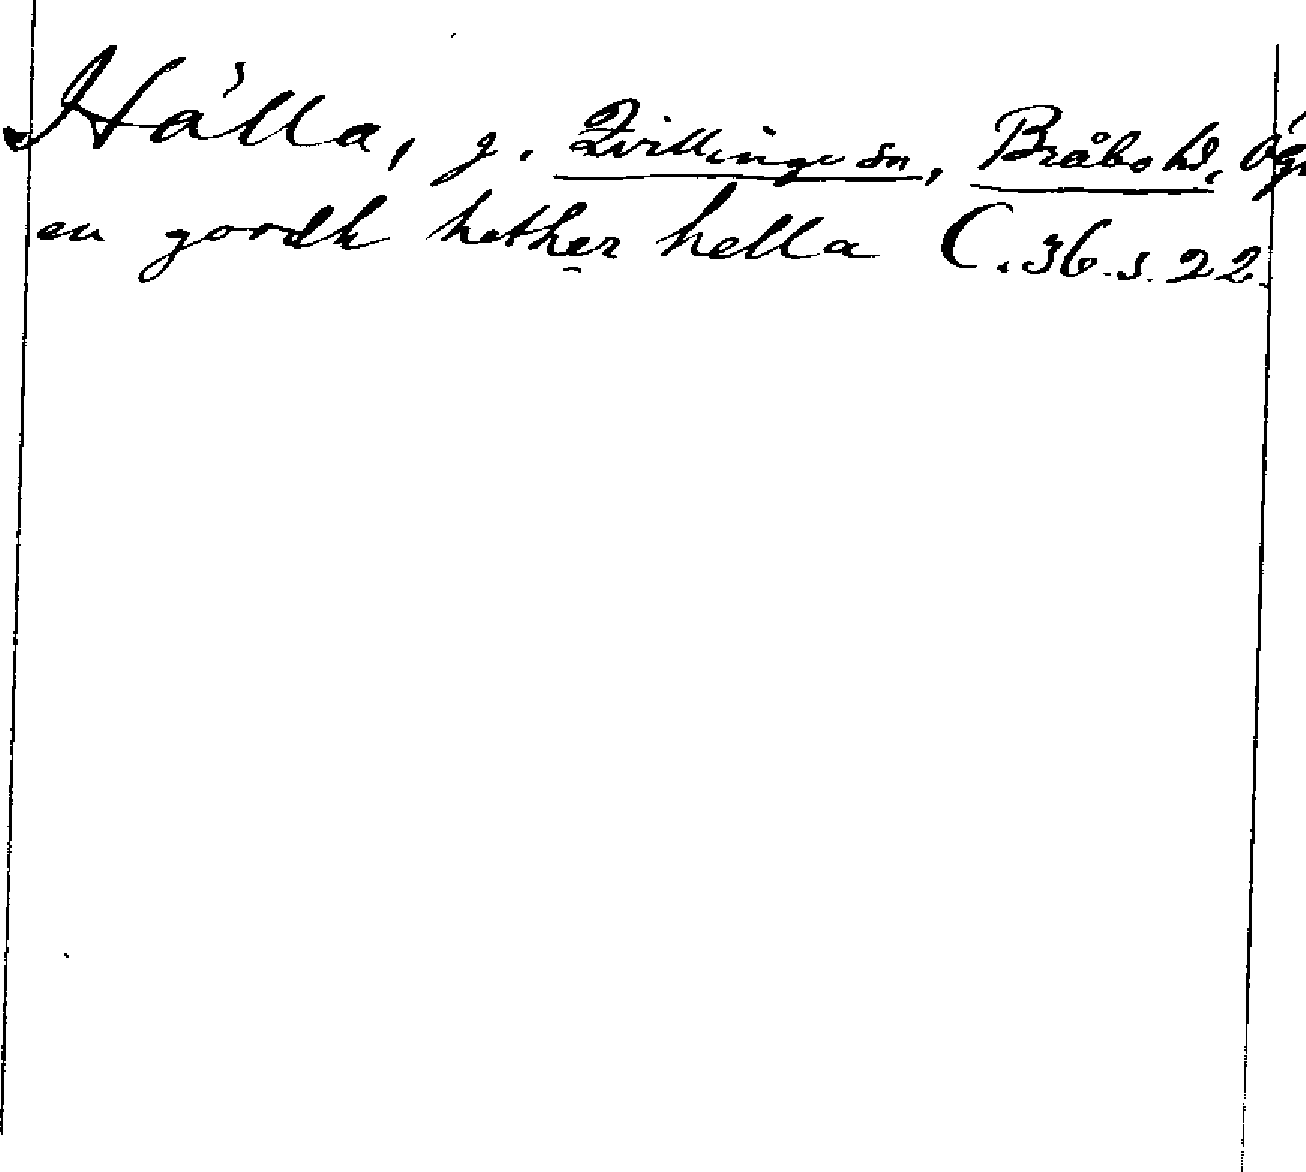 Hälla, g. Qvillinge sn, Bråbo hd, Ög.
en gordh hether hella C. 36. s. 22.